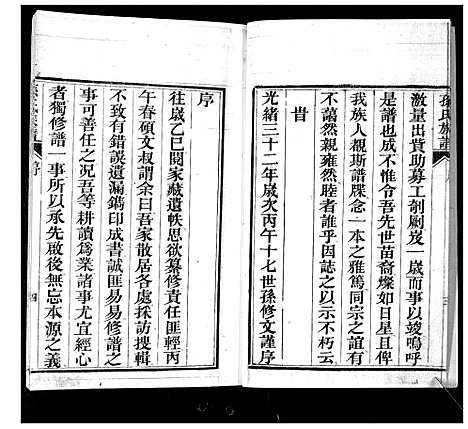 孫氏族譜
激量出貲助募工剞劂歲一歲而事以竣嗚呼
是譜也成不惟令吾先世苗裔燦如日星且俾
我族人觀斯譜牒念一本之雅篤同宗之誼有
不藹然親雍然睦者誰乎因誌之以示不朽云
旹
光緒三十二年歲次丙午十七世孫修文謹序
序
往歲乙巳閱家藏遺帙思欲纂修責任匪輕丙
午春碩文叔謂余曰吾家散居各處採訪搜輯
不致有錯誤遺漏鐫印成書誠匪易易修譜之
事可善任之況吾等耕讀為業諸事尤宜經心
者獨修譜一事所以承先啟後無忘本源之義
序
四